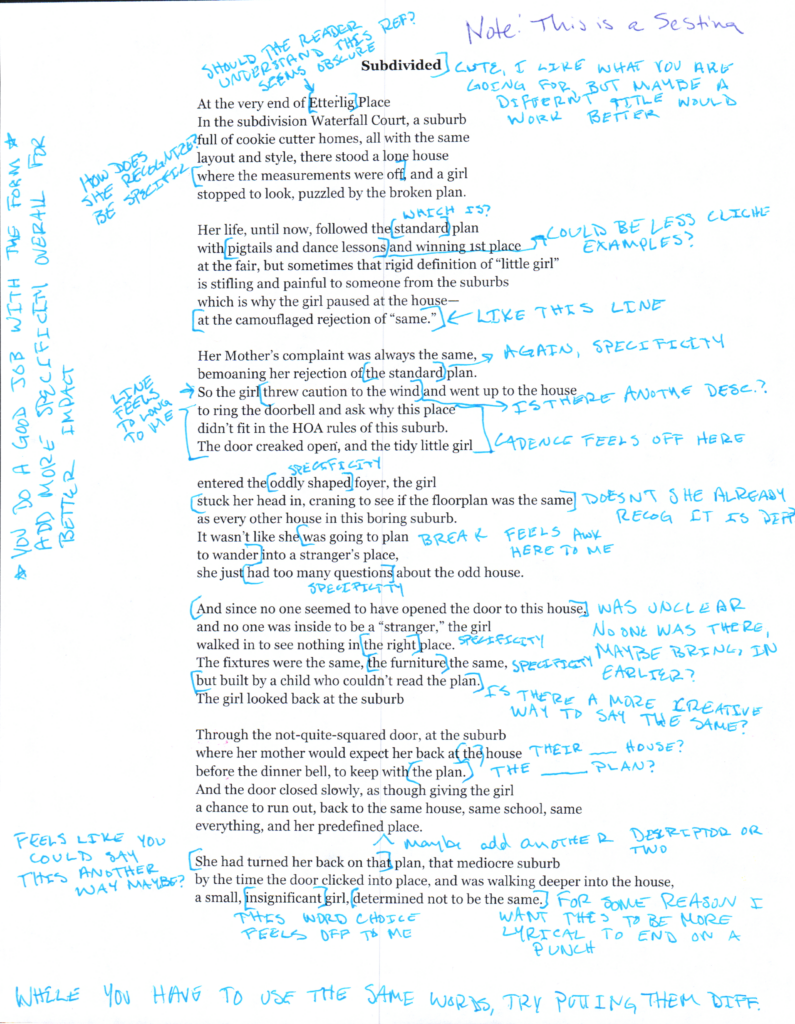 Note: This is a Sestina
SHOULD THE READER
UNDERSTAND THIS REF?
SEEMS OBSCURE
Subdivided
CUTE, I LIKE WHAT YOU ARE
GOING FOR, BUT MAYBE A
DIFFERNT TITLE WOULD
WORK BETTER
At the very end of Etterlig Place
In the subdivision Waterfall Court, a suburb
full of cookie cutter homes, all with the same
layout and style, there stood a lone house
where the measurements were off, and a girl
stopped to look, puzzled by the broken plan.
HOW DOES
SHE RECOGNIZE?
BE SPECIFIC
WHICH IS?
Her life, until now, followed the standard plan
with pigtails and dance lessons and winning 1st place
at the fair, but sometimes that rigid definition of “little girl”
is stifling and painful to someone from the suburbs
which is why the girl paused at the house—
at the camouflaged rejection of “same.”
COULD BE LESS CLICHE
EXAMPLES?
LIKE THIS LINE
Her Mother’s complaint was always the same,
bemoaning her rejection of the standard plan.
So the girl threw caution to the wind and went up to the house
to ring the doorbell and ask why this place
didn’t fit in the HOA rules of this suburb.
The door creaked open, and the tidy little girl
AGAIN, SPECIFICITY
LINE
FEELS
TO LONG
TO ME
IS THERE ANOTHE DESC.?
CADENCE FEELS OFF HERE
SPECIFICITY
entered the oddly shaped foyer, the girl
stuck her head in, craning to see if the floorplan was the same
as every other house in this boring suburb.
It wasn’t like she was going to plan
to wander into a stranger’s place,
she just had too many questions about the odd house.
DOESN'T SHE ALREADY
RECOG IT IS DIFF?
BREAK FEELS AWK
HERE TO ME
SPECIFICITY
And since no one seemed to have opened the door to this house,
and no one was inside to be a “stranger,” the girl
walked in to see nothing in the right place.
The fixtures were the same, the furniture the same,
but built by a child who couldn’t read the plan.
The girl looked back at the suburb
WAS UNCLEAR
NO ONE WAS THERE,
MAYBE BRING, IN
EARLIER?
SPECIFICITY
SPECIFICITY
IS THERE A MORE CREATIVE
WAY TO SAY THE SAME?
Through the not-quite-squared door, at the suburb
where her mother would expect her back at the house
before the dinner bell, to keep with the plan.
And the door closed slowly, as though giving the girl
a chance to run out, back to the same house, same school, same
everything, and her predefined place.
THEIR ___ HOUSE?
THE _____ PLAN?
MAYBE ADD ANOTHER DESCRIPTOR OR
TWO
FEELS LIKE YOU
COULD SAY
THIS ANOTHER
WAY MAYBE?
She had turned her back on that plan, that mediocre suburb
by the time the door clicked into place, and was walking deeper into the house,
a small, insignificant girl, determined not to be the same.
THIS WORD CHOICE
FEELS OFF TO ME
FOR SOME REASON I
WANT THIS TO BE MORE
LYRICAL TO END ON A
PUNCH
* YOU DO A GOOD JOB WITH THE FORM *
ADD MORE SPECIFICITY OVERALL FOR
BETTER IMPACT
WHILE YOU HAVE TO USE THE SAME WORDS, TRY PUTTING THEM DIFF.